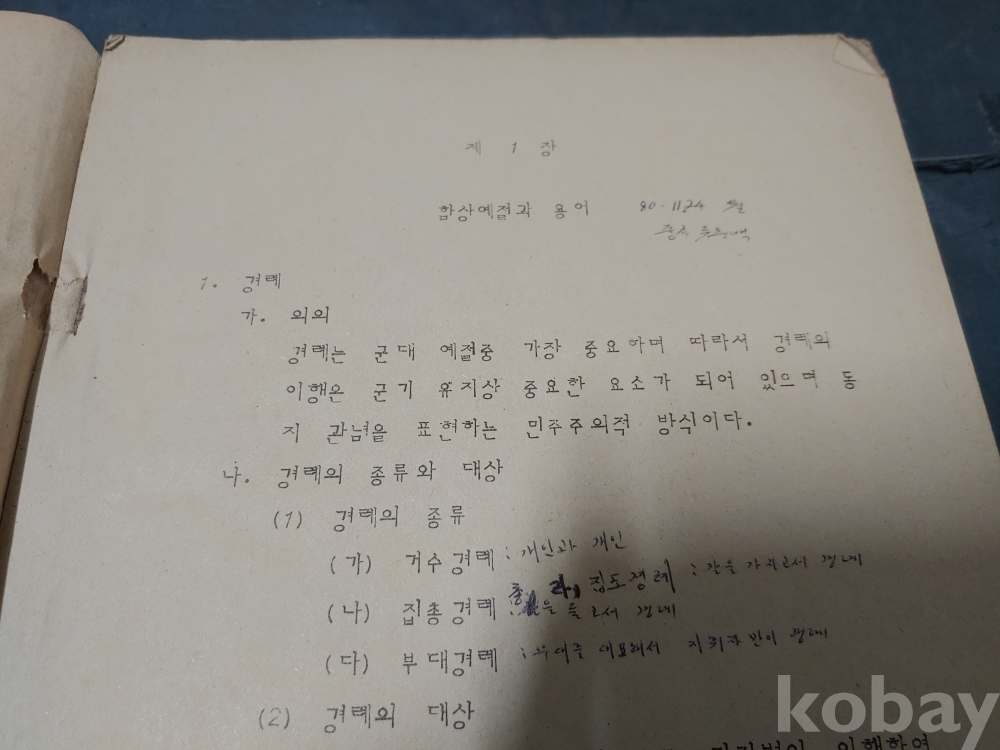 제 1 장
함상예절과 용어 80-11.24
1. 경례
가. 의의
경례는 군대 예절중 가장 중요하며 따라서 경례의
이행은 군기 유지상 중요한 요소가 되어 있으며 동
지 관념을 표현하는 민주주의적 방식이다.
나. 경례의 종류와 대상
(1) 경례의 종류
(가) 거수경례 : 개인과 개인
라, 집도경례 : 칼을 가지고서 경례
(나) 집총경례 : 총을 들고서 경례
(다) 부대경례 : 부대를 대표해서 지휘자만이 경례
(2) 경례의 대상
이행하여
kobay